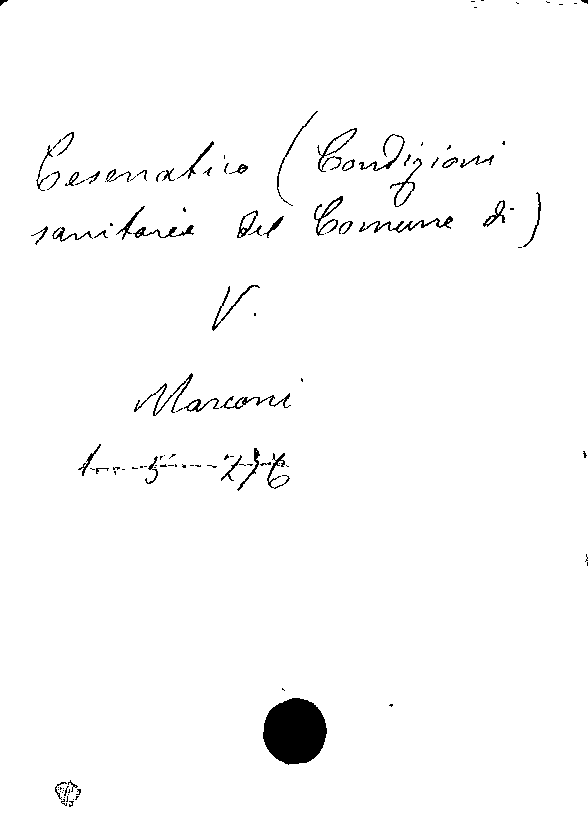 Cesenatico (Condizioni
sanitarie del Comune di)
V.
Marconi
1. 5. 276